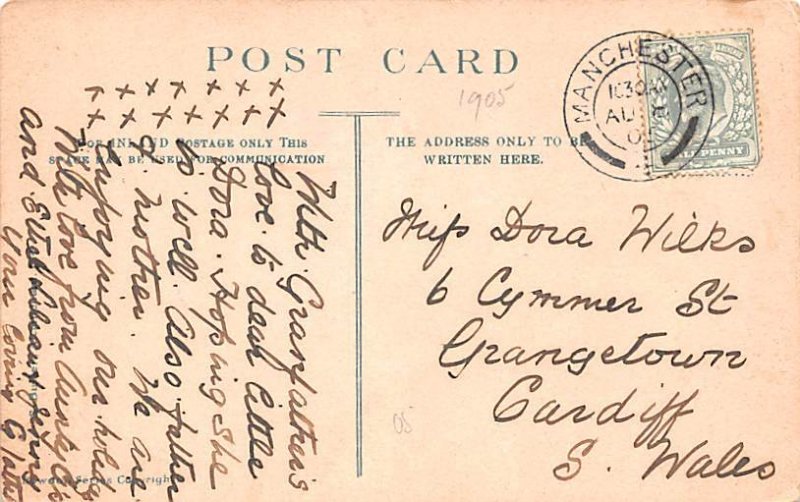 POST CARD
FOR INLAND POSTAGE ONLY THIS
SPACE MAY BE USED FOR COMMUNICATION
THE ADDRESS ONLY TO BE
WRITTEN HERE.
1905
MANCHESTER
10 30 AM
AU
PENNY
With Granfathers
love to dear little
Dora. Hoping she
is well. Also father
& mother. We are
Enjoying our holiday
With love from Aunty
and Ethel Lilian
Your loving G
Miss Dora Wilks
6 Cymmer St
Grangetown
Cardiff
S. Wales
05
Series Copyright